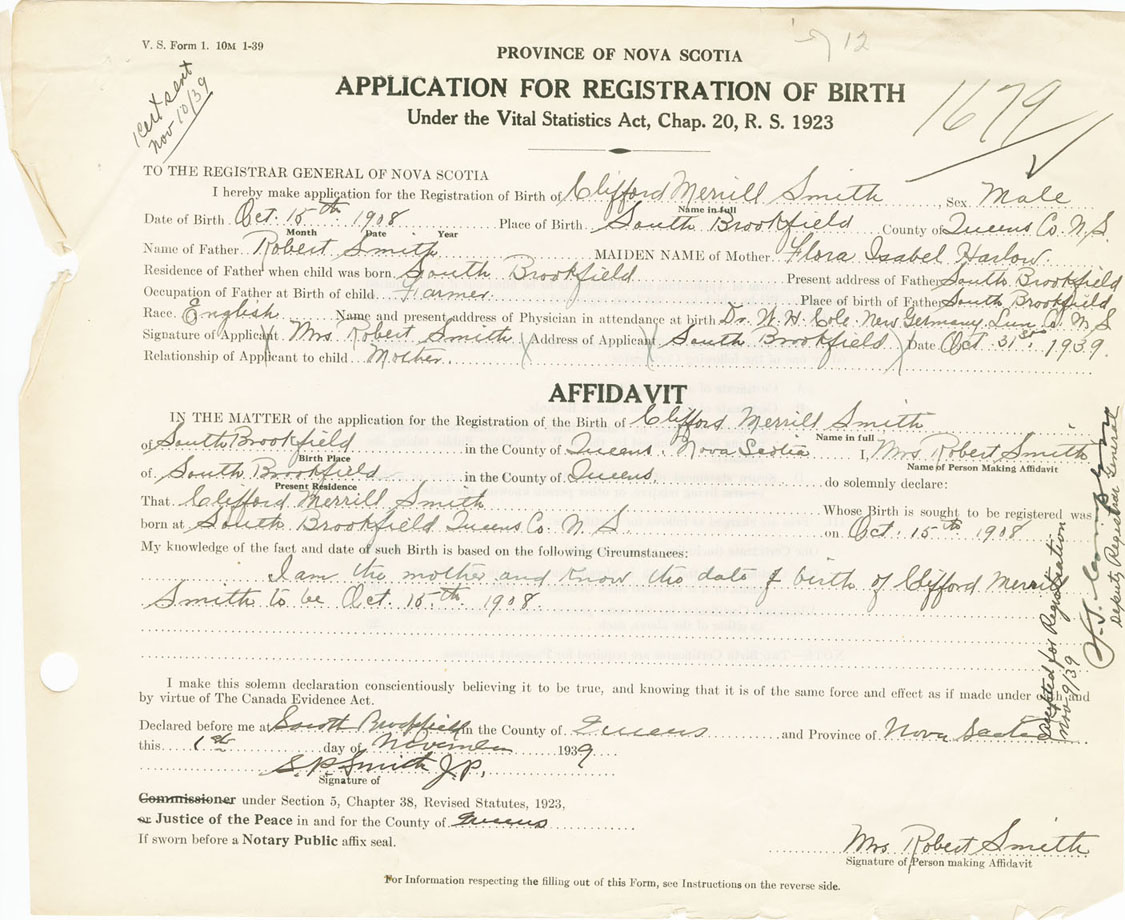 V. S. Form 1. 10M 1-39
12
PROVINCE OF NOVA SCOTIA
Cert sent
Nov 10/39
APPLICATION FOR REGISTRATION OF BIRTH
1679
Under the Vital Statistics Act, Chap. 20, R. S. 1923
TO THE REGISTRAR GENERAL OF NOVA SCOTIA
I hereby make application for the Registration of Birth of Clifford Merrill Smith, Sex Male
Name in full
Date of Birth Oct. 15th 1908 Place of Birth South Brookfield County of Queens Co. N.S.
Month Date Year
Name of Father Robert Smith MAIDEN NAME of Mother Flora Isabel Harlow.
Residence of Father when child was born South Brookfield Present address of Father South Brookfield
Occupation of Father at Birth of child Farmer. Place of birth of Father South Brookfield
Race. English Name and present address of Physician in attendance at birth Dr. W. H. Cole New Germany Lun. Co. N S
Signature of Applicant Mrs Robert Smith Address of Applicant South Brookfield Date Oct 31st 1939.
Relationship of Applicant to child Mother.
AFFIDAVIT
IN THE MATTER of the application for the Registration of the Birth of Clifford Merrill Smith
Name in full
of South Brookfield in the County of Queens, Nova Scotia I, Mrs Robert Smith
Birth Place Name of Person Making Affidavit
of South Brookfield in the County of Queens, do solemnly declare:
Present Residence
That Clifford Merrill Smith Whose Birth is sought to be registered was
born at South Brookfield Queens Co. N. S. on Oct. 15th 1908
My knowledge of the fact and date of such Birth is based on the following Circumstances:
I am the mother and know the date of birth of Clifford Merrill
Smith to be Oct. 15th. 1908.
I make this solemn declaration conscientiously believing it to be true, and knowing that it is of the same force and effect as if made under oath and
by virtue of The Canada Evidence Act.
Declared before me at South Brookfield in the County of Queens and Province of Nova Scotia
this 1st day of November 1939
S. P. Smith J.P.
Signature of
Commissioner under Section 5, Chapter 38, Revised Statutes, 1923,
or Justice of the Peace in and for the County of Queens
If sworn before a Notary Public affix seal.
Mrs Robert Smith
Signature of Person making Affidavit
For Information respecting the filling out of this Form, see Instructions on the reverse side.
Accepted for Registration
Nov 9/39
Deputy Registrar General